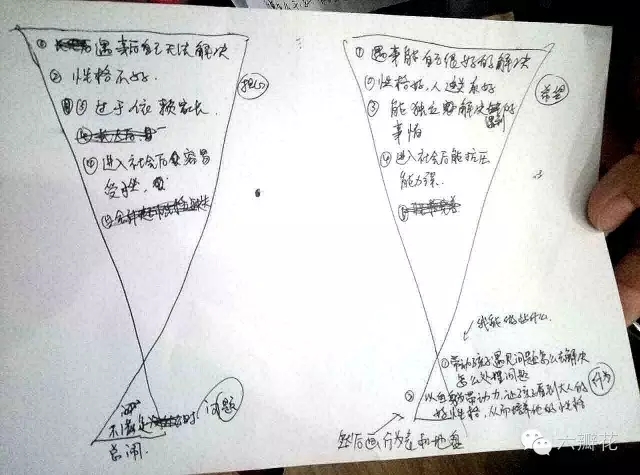 ① 遇事后自己无法解决
② 性格不好.
③ 过于依赖家长.
④ 进入社会后容易
受挫.
担心
问题
不满足时
总闹.
① 遇事能自己很好的解决
② 性格好,人过关好
③ 能独立解决遇到的
事情
④ 进入社会后能抗压
能力强.
希望
我能做些什么
① 带动孩子遇见问题怎么去解决
怎么处理问题
② 以自身带动力,让孩子看到大人的
好性格,从而培养他好性格
行为
然后画行为
六瓣花